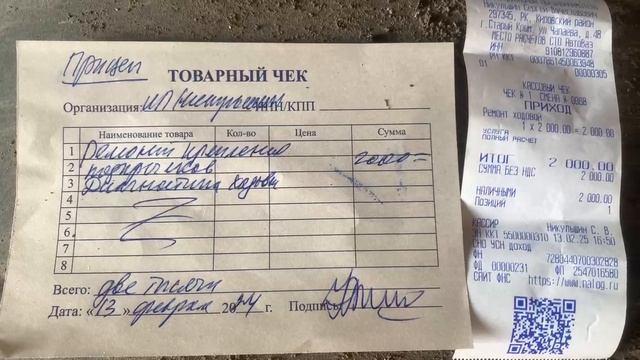 Прицеп
ТОВАРНЫЙ ЧЕК
Организация: ИП Никульшин ИНН/КПП
Наименование товара Кол-во Цена Сумма
1 Ремонт крепления 2000=
2
3 Диагностика ходовой
4
5
6
7
8
Всего: две тысячи
Дата: «13» февраля 2024 г. Подпись
297345, РК, Кировский район
г.Старый Крым, ул. Чапаева, д.4В
МЕСТО РАСЧЕТОВ СТО АвтоВаз
ИНН 910812960887
00000305
КАССОВЫЙ ЧЕК
ЧЕК № 1 СМЕНА № 0068
ПРИХОД
Ремонт ходовой
1 x 2 000.00 = 2 000.00
УСЛУГА
ПОЛНЫЙ РАСЧЕТ
ИТОГ 2 000.00
СУММА БЕЗ НДС 2 000.00
НАЛИЧНЫМИ 2 000.00
ПОЗИЦИЙ 1
КАССИР Никульшин С. В.
ЗН ККТ 5500000310 13.02.25 16:50
СНО УСН ДОХОД
ФН 7280440700302828
ФД 00000231 ФП 2547016580
САЙТ ФНС https://www.nalog.ru